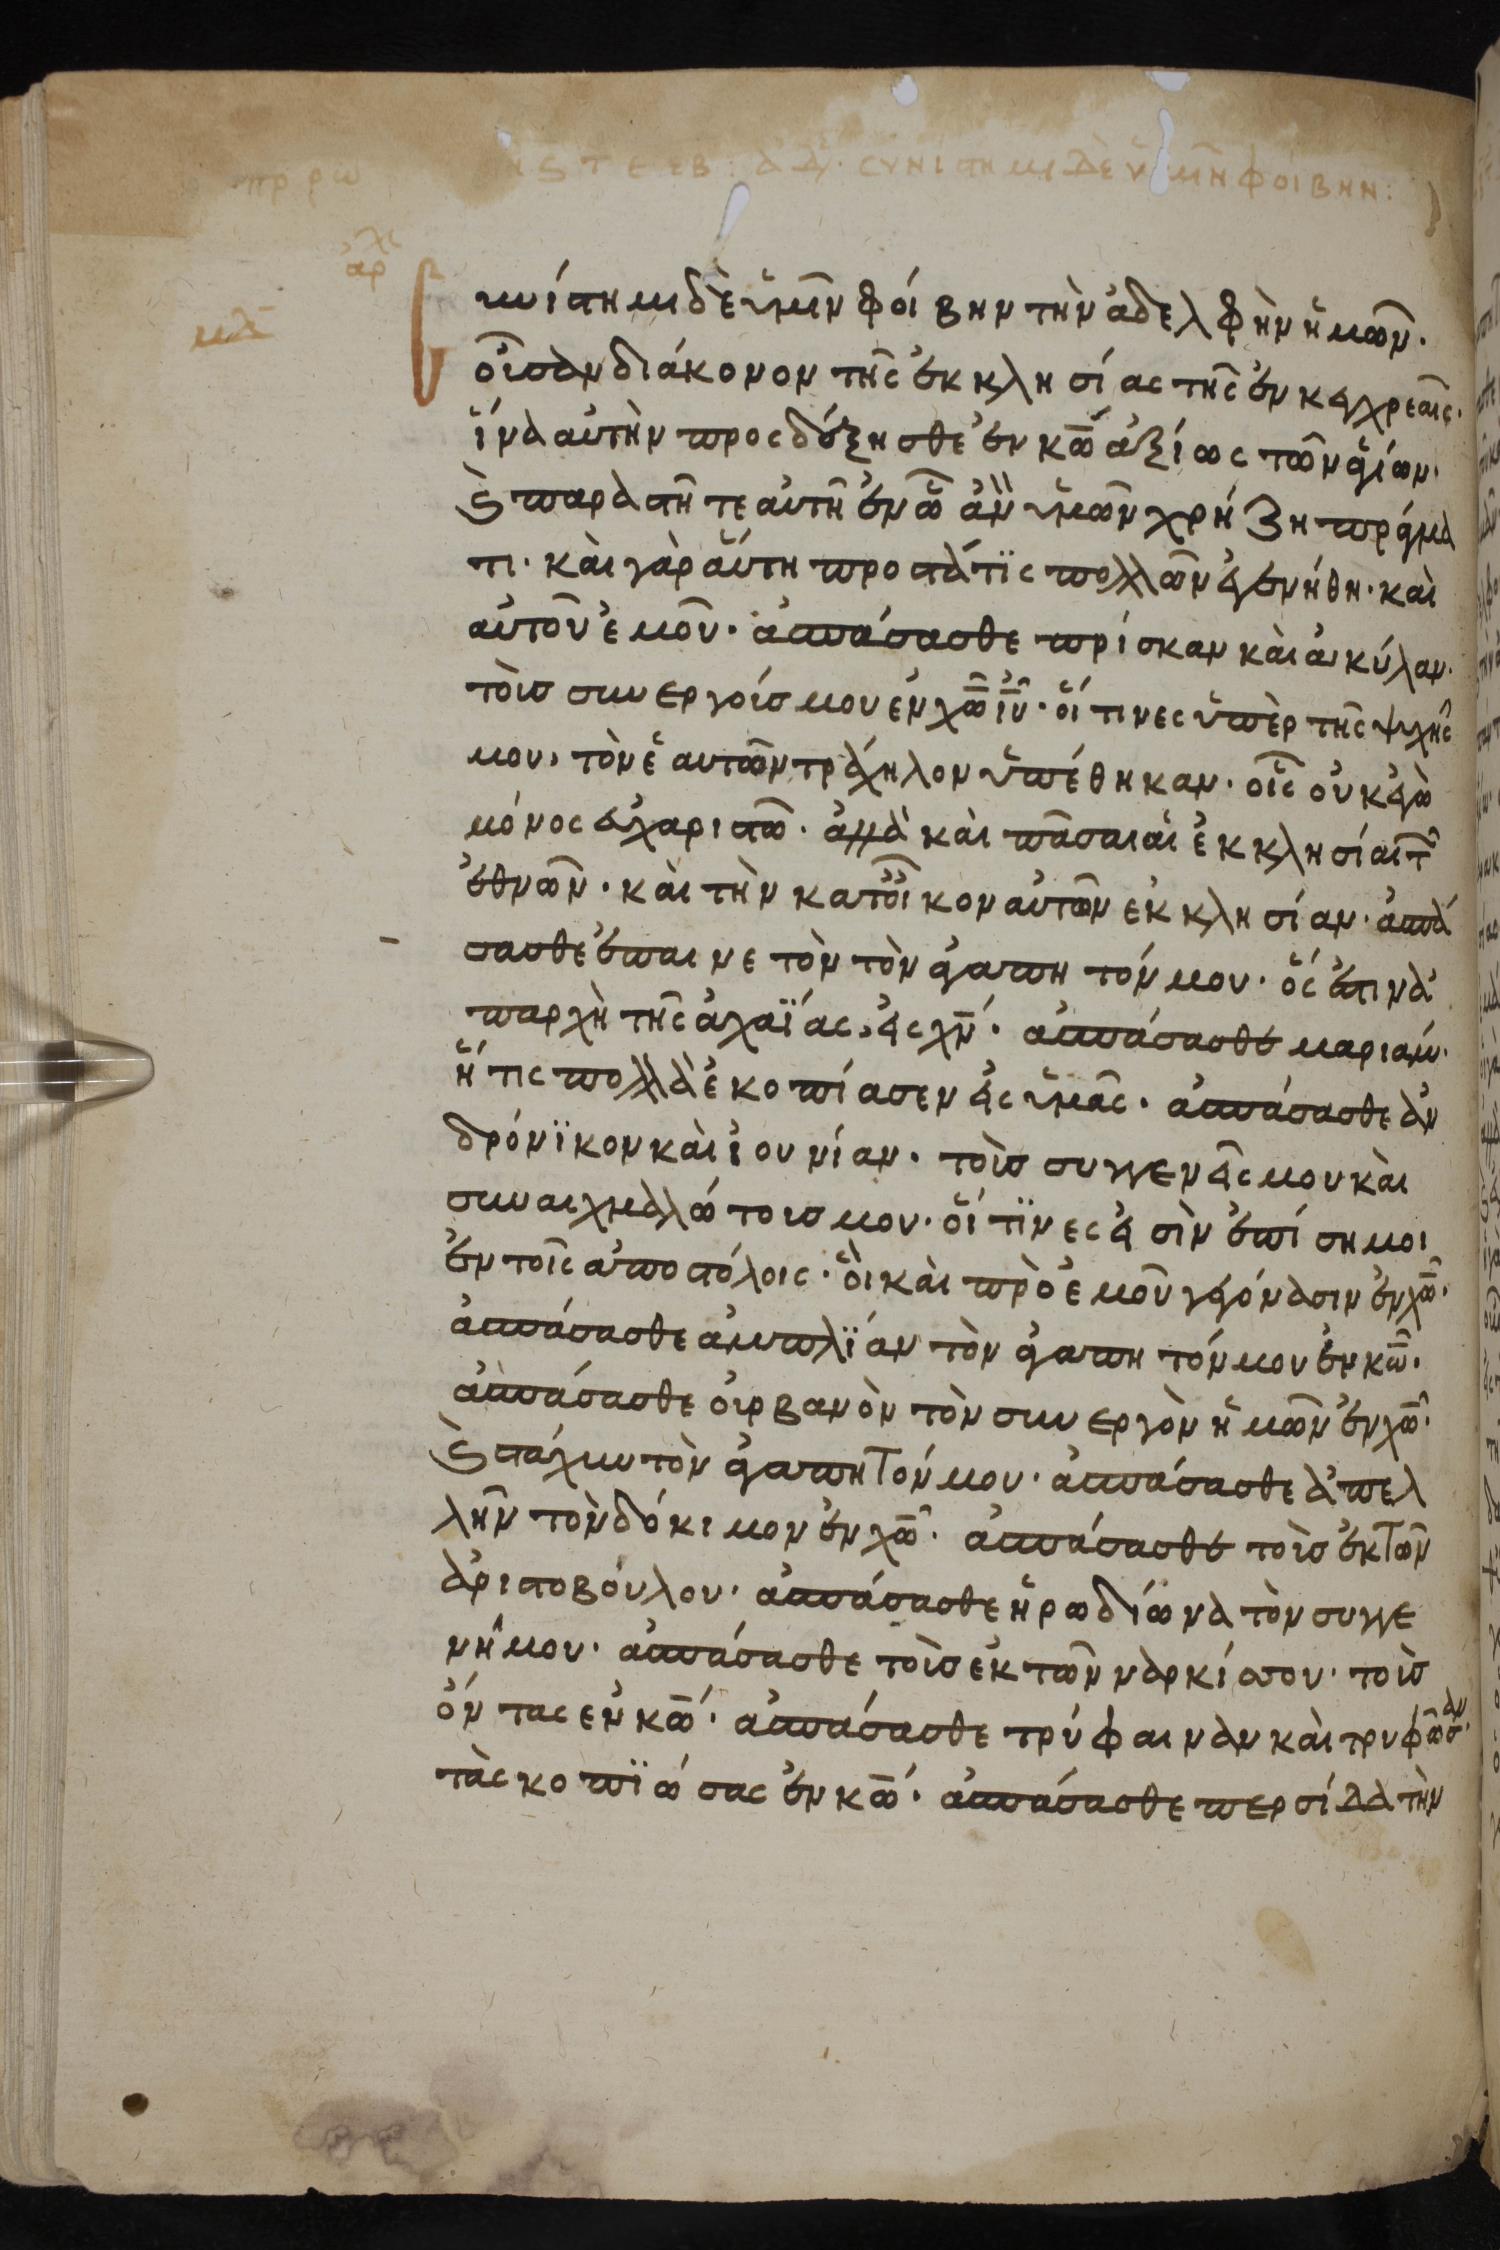 πρ ρω
ϛ τ ε εβ : ἀδελ. συνίστημι δὲ ὑμῖν φοίβην :
ἀρχ
μδ
Συνίστημι δὲ ὑμῖν φοίβην τὴν ἀδελφὴν ἡμῶν·
οὖσαν διάκονον τῆς ἐκκλησίας τῆς ἐν κεχρεαῖς·
ἵνα αὐτὴν προσδέξησθε ἐν κω̅ ἀξίως τῶν ἁγίων·
ϗ παραστῆτε αὐτῆ ἐν ὧ ἂν ὑμῶν χρήζη πράγμα
τι· καὶ γὰρ αὕτη προστάτϊς πολλῶν ἐγενήθη· καὶ
αὐτοῦ ἐμοῦ· ἀσπάσασθε πρίσκαν καὶ ἀκύλαν·
τοὺσ συνεργούσ μου ἐν χω̅ ιυ̅· οἵτινες ὑπὲρ τῆς ψυχῆς
μου, τὸν ἑαυτῶν τράχηλον ὑπέθηκαν· οἷς οὐκ ἐγὼ
μόνος εὐχαριστῶ· ἀλλὰ καὶ πᾶσαι αἱ ἐκκλησίαι τῶν
ἐθνῶν· καὶ τὴν κατ᾽ οἶκον αὐτῶν ἐκκλησίαν· ἀσπά
σασθε ἐπαινετὸν τὸν ἀγαπητόν μου· ὅς ἐστιν ἀ
παρχὴ τῆς ἀχαϊας, εἰς χν̅· ἀσπάσασθε μαριάμ·
ἥτις πολλὰ ἐκοπίασεν εἰς ὑμᾶς· ἀσπάσασθε ἀν
δρόνϊκον καὶ ἰουνίαν· τοὺσ συγγενεῖς μου καὶ
συναιχμαλώτουσ μου· οἵτϊνες εἰσὶν ἐπίσημοι
ἐν τοῖς ἀποστόλοις· οἳ καὶ πρὸ ἐμοῦ γεγόνασιν ἐν χω̅·
ἀσπάσασθε ἀμπλϊαν τὸν ἀγαπητόν μου ἐν κω̅·
ἀσπάσασθε οὐρβανὸν τὸν συνεργὸν ἡμῶν ἐν χω̅·
ϗ στάχυν τὸν ἀγαπητόν μου· ἀσπάσασθε ἀπελ
λῆν τὸν δόκιμον ἐν χω̅· ἀσπάσασθε τοὺσ ἐκ τῶν
ἀριστοβούλου· ἀσπάσασθε ἡρωδίωνα τὸν συγγε
νῆ μου· ἀσπάσασθε τοὺσ ἐκ τῶν ναρκίσσου· τοὺσ
ὄντας ἐν κω̅· ἀσπάσασθε τρύφαιναν καὶ τρυφῶσαν·
τὰς κοπϊώσας ἐν κω̅· ἀσπάσασθε περσίδα τὴν